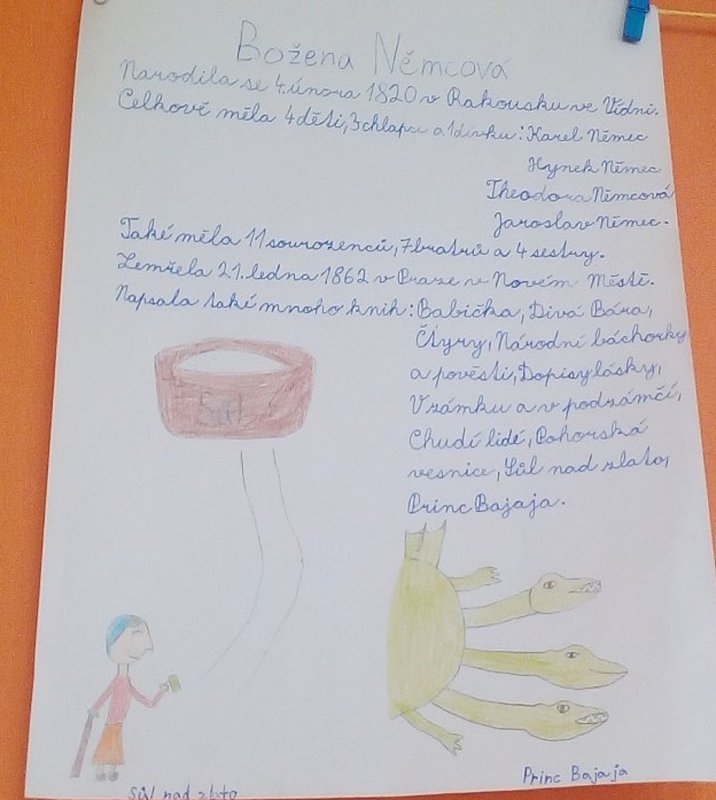 Božena Němcová
Narodila se 4. února 1820 v Rakousku ve Vídni.
Celkově měla 4 děti, 3 chlapce a 1 dívku: Karel Němec
Hynek Němec
Theodora Němcová
Jaroslav Němec.
Také měla 11 sourozenců, 7 bratrů a 4 sestry.
Zemřela 21. ledna 1862 v Praze v Novém Městě.
Napsala také mnoho knih: Babička, Divá Bára,
Čtyry, Národní báchorky
a pověsti, Dopisy lásky,
V zámku a v podzámčí,
Chudí lidé, Pohorská
vesnice, Sůl nad zlato,
Princ Bajaja.
Sůl
Sůl nad zlato
Princ Bajaja